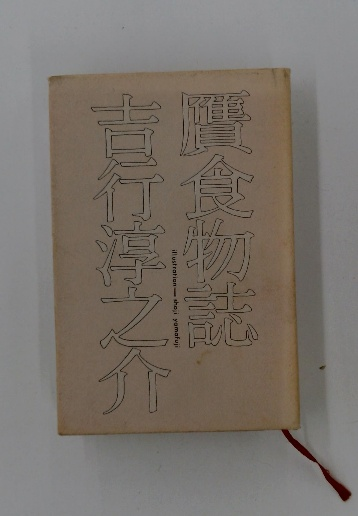 贋食物誌
吉行淳之介
illustration—shoji yamafuji